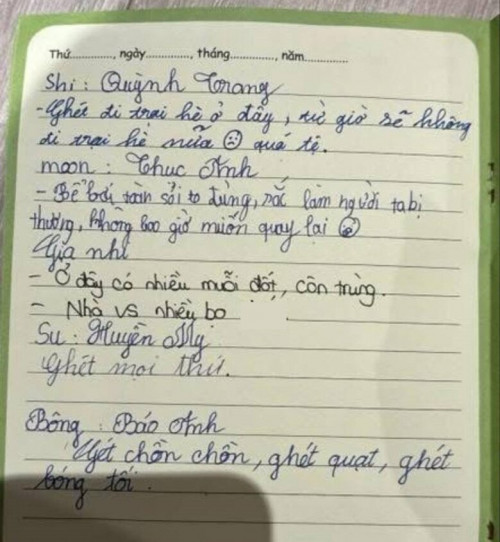 Thứ............, ngày............, tháng............, năm............
Shi : Quỳnh Trang
- Ghét đi trại hè ở đây, từ giờ sẽ không
đi trại hè nữa ☹ quá tệ.
moon : Thuc Anh
- Bể bơi toàn sỏi to đùng, rác làm người ta bị
thương, không bao giờ muốn quay lại
Gia nhi
- Ở đây có nhiều muỗi đốt, côn trùng.
- Nhà vs nhiều bọ
Su : Huyền My
Ghét mọi thứ.
Bông : Bảo Anh
Gét chồn chồn, ghét quạt, ghét
bóng tối.